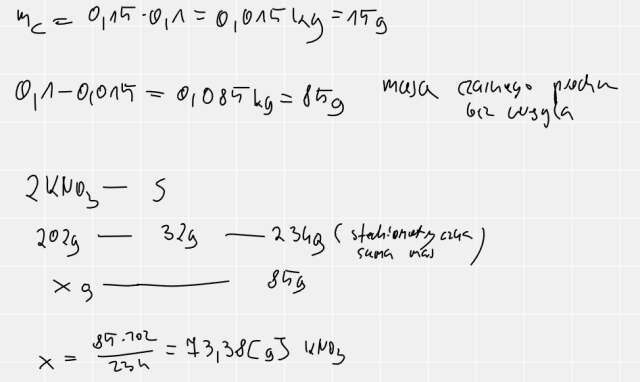 m_C = 0,15 · 0,1 = 0,015 kg = 15g
0,1 - 0,015 = 0,085 kg = 85g masa czarnego prochu
bez węgla
2KNO₃ — S
202g — 32g — 234g (stechiometryczna
suma mas)
x g ——— 85g
x = \frac{85·202}{234} = 73,38[g] KNO₃